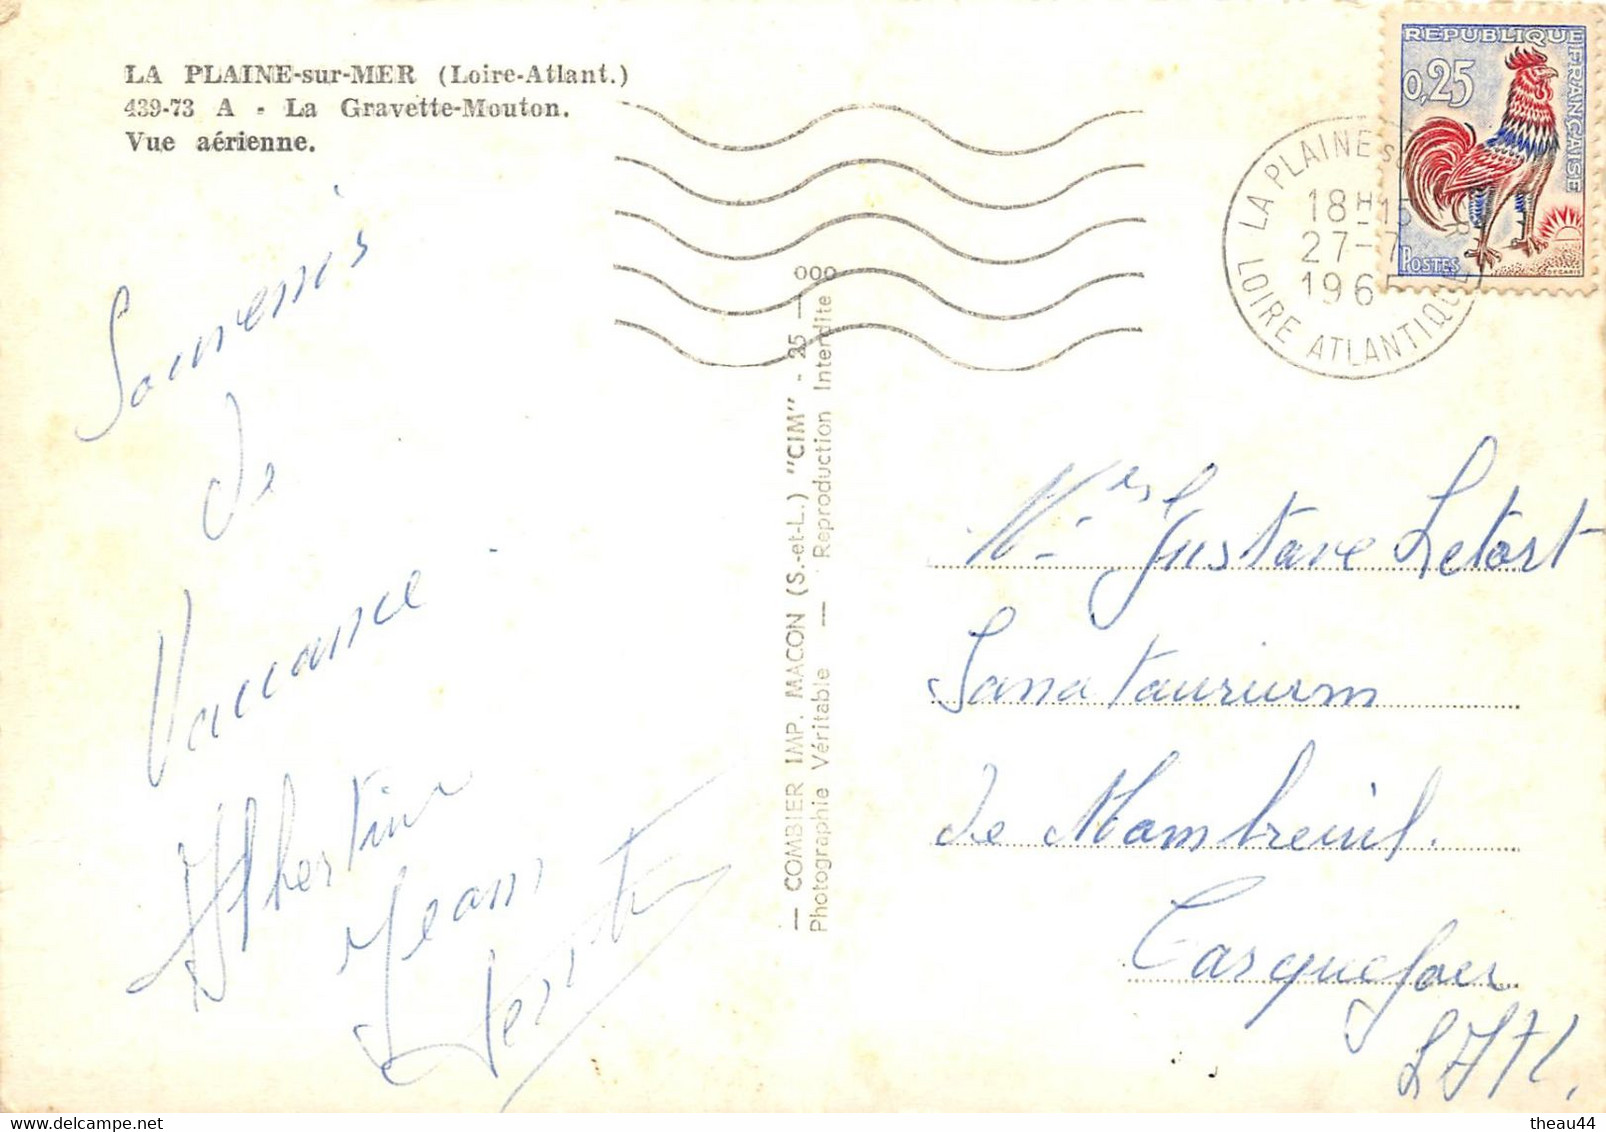 LA PLAINE-sur-MER (Loire-Atlant.)
439-73 A - La Gravette-Mouton.
Vue aérienne.
Souvenirs
de
Vaccance
Albertine
Jean
— COMBIER IMP. MACON (S.-et-L.) "CIM" - 25 — ooo
Photographie Véritable — Reproduction Interdite
REPUBLIQUE FRANÇAISE
0,25
POSTES
DECARIS
LA PLAINE S
18H15
27-7
196
LOIRE ATLANTIQUE
Gustave Letort
Sanataurium
de Mambreuil.
Carquefou
L Atl.
theau44